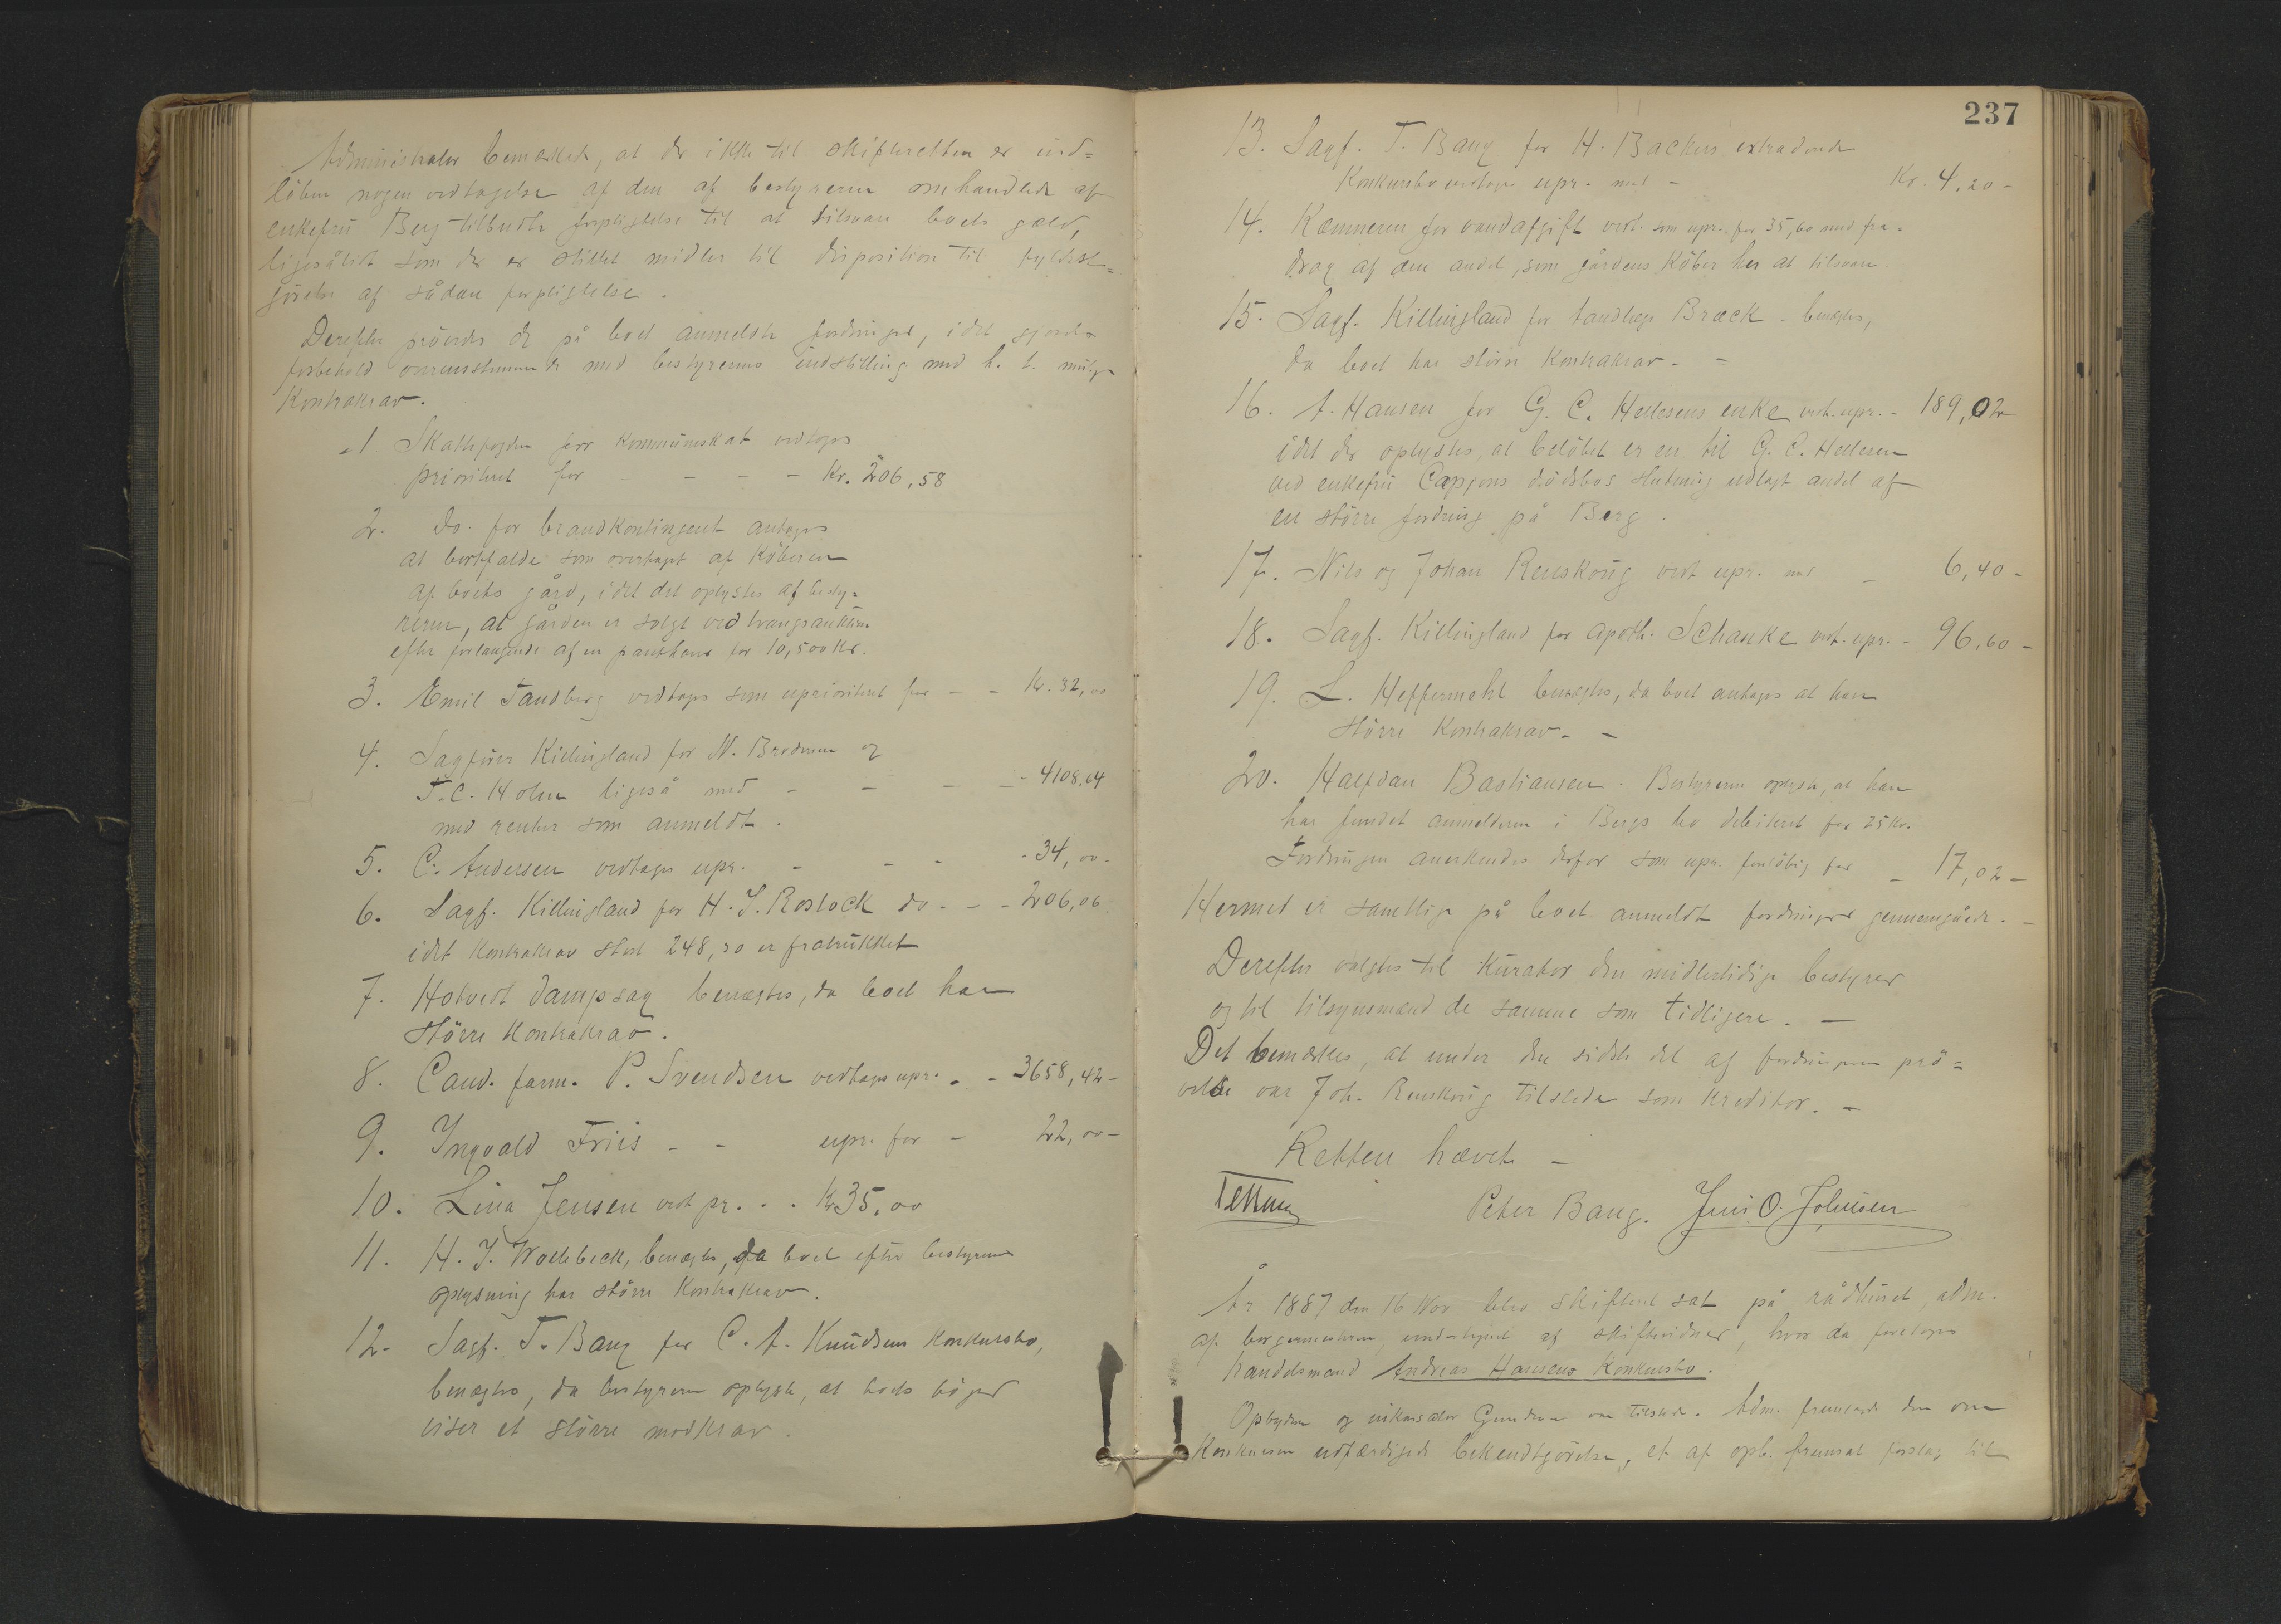 Administrator bemærkede, at der ikke til skifteretten er ind=
løben nogen vedtagelse af den af bestyreren omhandlede af
enkefru Berg tilbudte forpligtelse til at tilsvare boets gæld,
ligesålidt som der er stillet midler til disposition til fyldest=
gørelse af sådan forpligtelse.
Derefter prøvedes de på boet anmeldte fordringer, idet gjordes
forbehold overensstemmende med bestyrerens indstilling med h. t. mulige
Kontrakrav.
1. Skattefogden for kommuneskat vedtoges
prioriteret for - - - - Kr. 206,58
2. Do. for brandkontingent antoges
at bortfalde som overtaget af Køberen
af boets gård, idet det oplystes af besty=
reren, at gården er solgt ved tvangsauktion
efter forlangende af en panthaver for 10,500 Kr.
3. Emil Tandberg vedtoges som uprioriteret for - - Kr. 32,00
4. Sagfører Killingland for N. Brodersen og
T. C. Holm ligeså med - - - - 4108,64
med renter som anmeldt.
5. C. Andersen vedtages upr. - - - - 34,00 -
6. Sagf. Killingland for H. J. Rostock do - - - 206,06
idet Kontrakrav stort 248,30 er fratrukket
7. Hotvedt dampsag benægtes, da boet har
større Kontrakrav.
8. Cand. farm. P. Svendsen vedtages upr. - - 3658,42 -
9. Ingvald Friis - - upr. for - 22,00 -
10. Lina Jensen vedt pr. . . Kr 35,00
11. H. J. Wollebeck, benægtes, da boet efter bestyrerens
oplysning har større Kontrakrav.
12. Sagf. T. Bang for C. A. Knudsens Konkursbo,
benægtes, da bestyreren oplyste, at boets bøger
viser et større modkrav.
237
13. Sagf. T. Bang for H. Backers extraderede
Konkursbo vedtoges upr. med - Kr. 4,20 -
14. Kæmneren for vandafgift vedt. som upr. for 35,60 med fra=
drag af den andel, som gårdens Køber har at tilsvare
15. Sagf. Killingland for tandlæge Bræck - benægtes,
da boet har større Kontrakrav. -
16. A. Hansen for G. C. Hellesens enke vedt. upr. - 189,02
idet det oplystes, at beløbet er en til G. C. Hellesen
ved enkefru Cappons dødsbos slutning udlagt andel af
en større fordring på Berg.
17. Nils og Johan Renskoug vedt upr. med - 6,40 -
18. Sagf. Killingland for apoth. Schanke vedt. upr. - 96,60 -
19. L. Heffermehl benægtes, da boet antages at have
større Kontrakrav. -
20. Halfdan Bastiansen. Bestyreren oplyste, at han
har fundet anmelderen i Bergs bo debiteret for 25 Kr.
Fordringen anerkendes derfor som upr. foreløbig for - 17,02 -
Hermed er samtlige på boet anmeldte fordringer gennemgåede. -
Derefter valgtes til Kurator den midlertidige bestyrer
og til tilsynsmænd de samme som tidligere. -
Det bemærkes, at under den sidste del af fordringernes prø=
velse var Joh. Renskoug tilstede som kreditor. -
Retten hævet -
Peter Bang. Jens O. Johnsen
År 1887 den 16 Nov. blev skifteret sat på rådhuset, adm.
af borgermesteren, undertegnet af skiftevidner, hvor da foretoges
handelsmand Andreas Hansens Konkursbo.
Opbyderen og inkassator Gundersen var tilstede. Adm. fremlagde den om
Konkursen udfærdigede bekendtgørelse, et af opb. fremsat forslag til